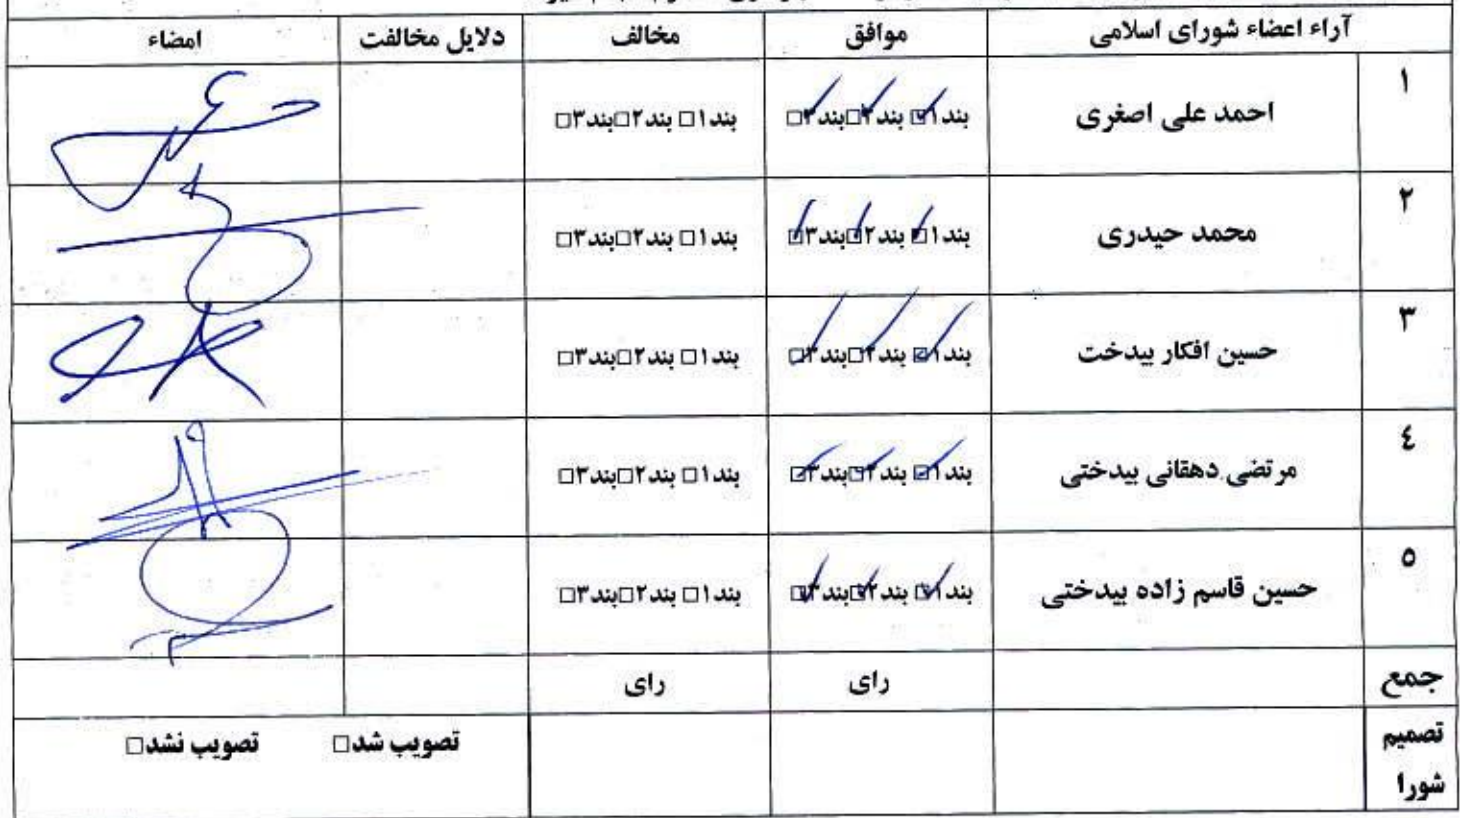 آراء اعضاء شورای اسلامی موافق مخالف دلایل مخالفت امضاء
۱ احمد علی اصغری بند۱☑ بند۲☑ بند۳☑ بند۱□ بند۲□ بند۳□
۲ محمد حیدری بند۱☑ بند۲☑ بند۳☑ بند۱□ بند۲□ بند۳□
۳ حسین افکار بیدخت بند۱☑ بند۲☑ بند۳☑ بند۱□ بند۲□ بند۳□
٤ مرتضی دهقانی بیدختی بند۱☑ بند۲☑ بند۳☑ بند۱□ بند۲□ بند۳□
۵ حسین قاسم زاده بیدختی بند۱☑ بند۲☑ بند۳☑ بند۱□ بند۲□ بند۳□
جمع رای رای
تصمیم شورا تصویب شد□ تصویب نشد□